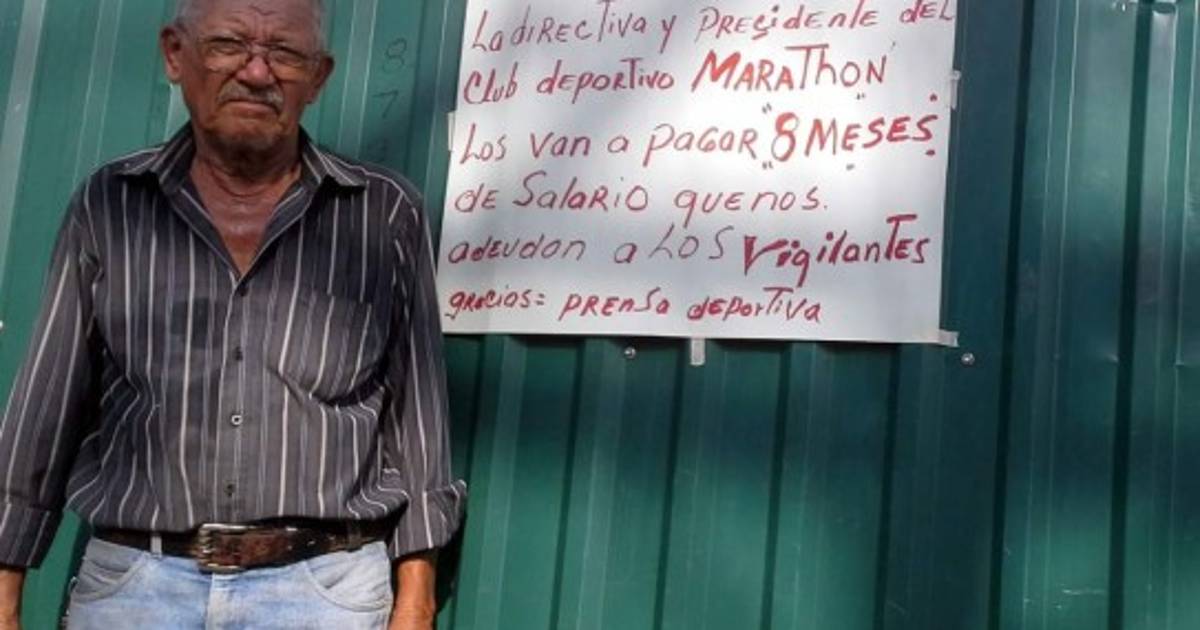 La directiva y Presidente del
Club deportivo MARAThON
Los van a pagar "8 MESES".
de Salario quenos.
adeudan a LOS Vigilantes
gracias= prensa deportiva
8
7